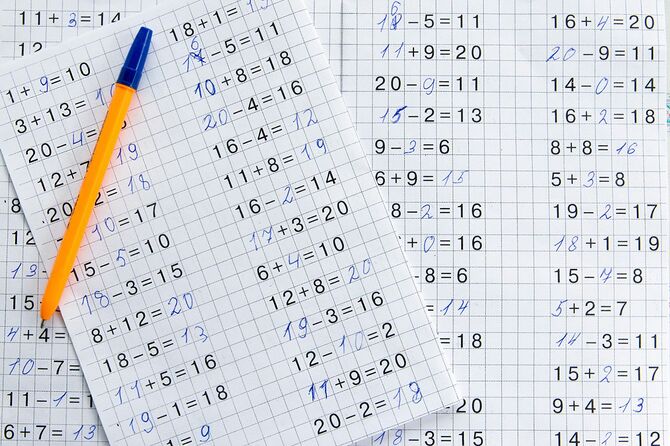 11+3=14
12
8
12
13-
15
4+4=
10-7=
11-1=1
6+7=13
1+9=10
3+13=1
20-4=
12+7=19
20-2=18
-10=17
15-5=10
18-3=15
8+12=20
18-5=13
11+5=16
19-1=18
1=9
18+1=19
16-5=11
10+8=18
20-4=16
16-4=12
11+8=19
16-2=14
17+3=20
6+4=10
12+8=20
19-3=16
12-10=2
11+9=20
20-2=18
16-5=11
11+9=20
20-9=11
15-2=13
9-3=6
6+9=15
8-2=16
+0=16
-8=6
=14
=18
20
18-3=15
16+4=20
20-9=11
14-0=14
16+2=18
8+8=16
5+3=8
19-2=17
18+1=19
15-7=8
5+2=7
14-3=11
15+2=17
9+4=13